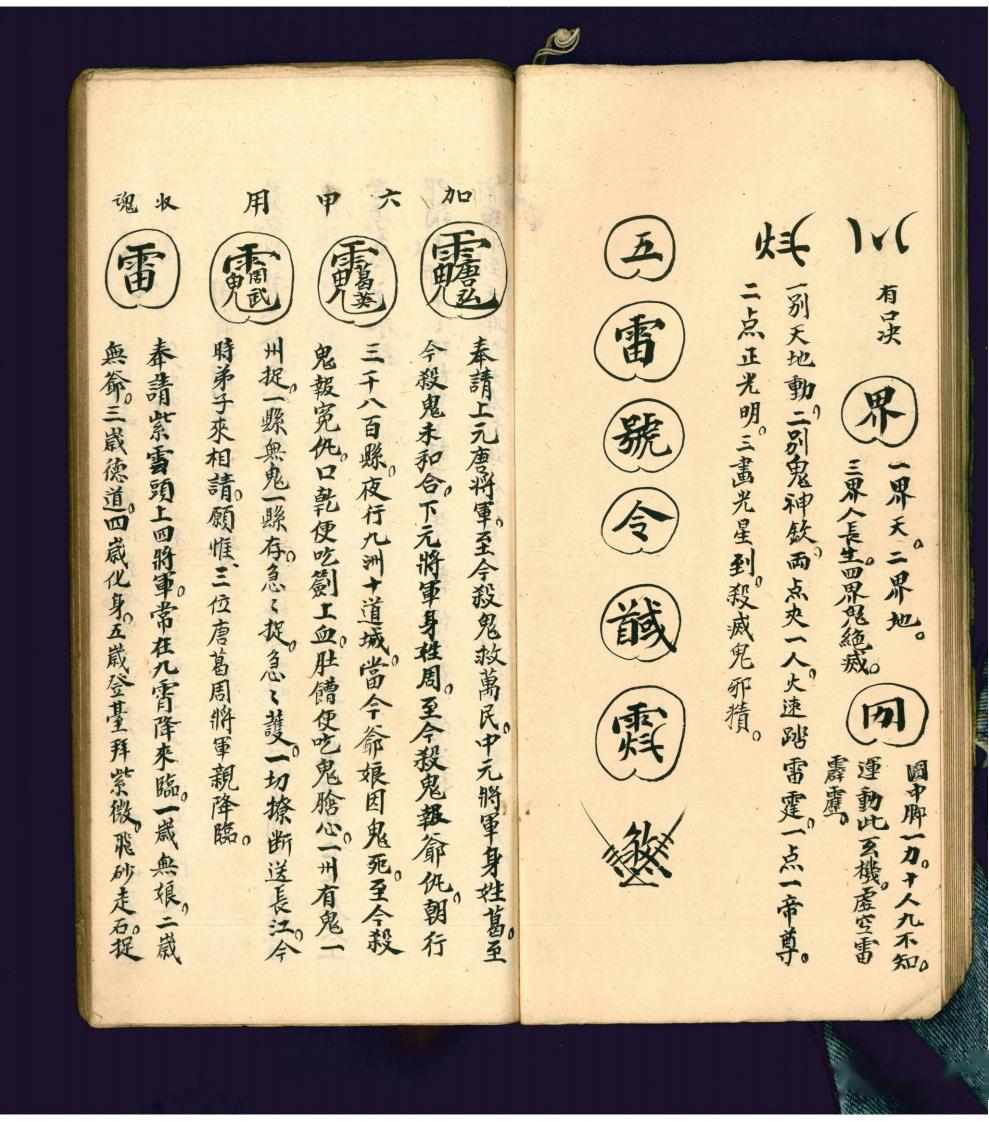 有口決
界
一界天。二界地。
三界人長生。四界鬼絕滅。
圖中脚一力。十人九不知。
運動此玄機。虛空雷
霹靂。
一別天地動。二別鬼神欽。両点夾一人。火速踏雷霆。一点一帝尊。
二点正光明。三畫光星到。殺滅鬼邪𤢜。
五
雷
號
令
加
六
甲
用
收
魂
唐弘
葛英
周武
雷
奉請上元唐将軍。至今殺鬼救萬民。中元將軍身姓葛。至
今殺鬼未和合。下元將軍身姓周。至今殺鬼報爺仇。朝行
三千八百縣。夜行九洲十道城。當今爺娘因鬼死。至今殺
鬼報寃仇。口乾便吃劍上血。肚饑便吃鬼膽心。一州有鬼一
州捉。一縣無鬼一縣存。急々捉。急々護。一切撩断送長江。今
時弟子來相請。願惟三位唐葛周將軍親降臨。
奉請紫雲頭上四將軍。常在九霄降來臨。一歲無娘。二歲
無爺。三歲德道。四歲化身。五歲登臺拜紫微。飛砂走石捉